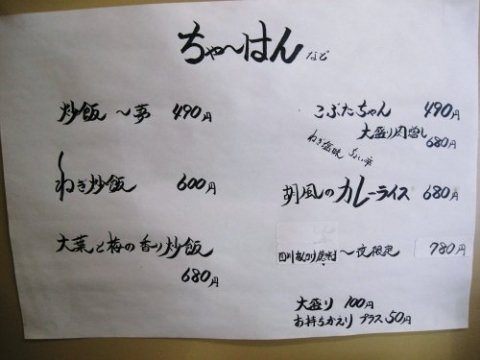 ちゃ〜はん など
炒飯 〜夢 490円
ねぎ炒飯 600円
大葉と梅の香り炒飯
680円
こぶたちゃん 490円
大盛り肉増し
680円
ねぎ塩味
胡風のカレーライス 680円
780円
大盛り 100円
お持ちかえり プラス50円